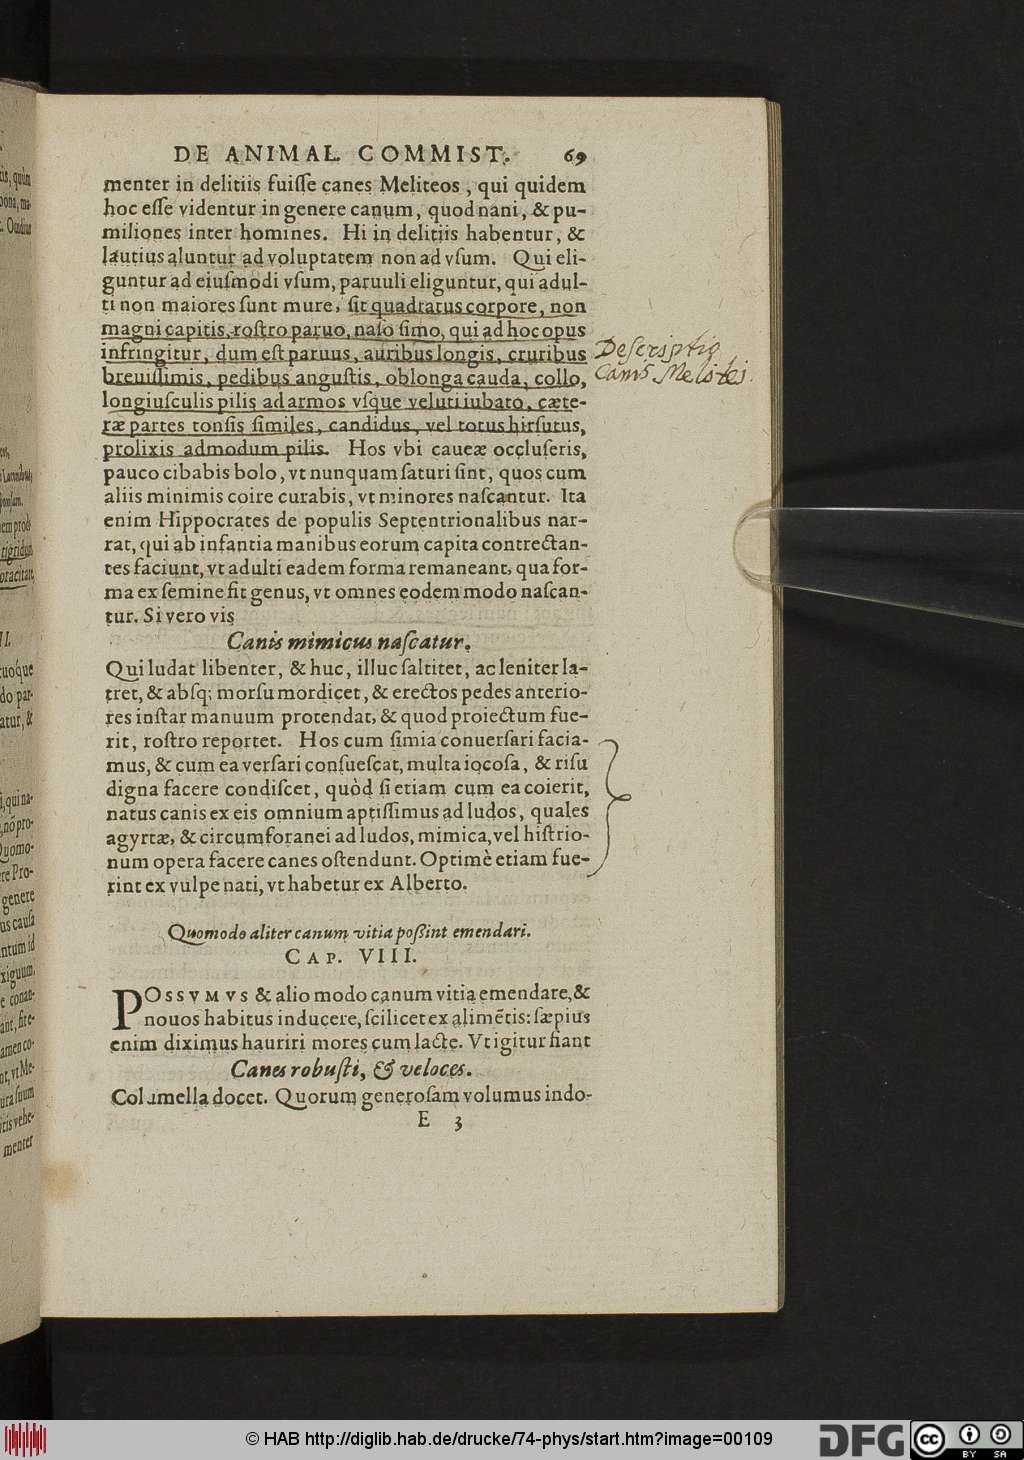 DE ANIMAL. COMMIST. 69
menter in delitiis fuiſſe canes Meliteos, qui quidem
hoc eſſe videntur in genere canum, quod nani, & pu-
miliones inter homines. Hi in delitiis habentur, &
lautius aluntur ad voluptatem non ad vſum. Qui eli-
guntur ad eiuſmodi vſum, paruuli eliguntur, qui adul-
ti non maiores ſunt mure, ſit quadratus corpore, non
magni capitis, roſtro paruo, naſo ſimo, qui ad hoc opus
infringitur, dum eſt paruus, auribus longis, cruribus
breuiſſimis, pedibus anguſtis, oblonga cauda, collo,
longiuſculis pilis ad armos vſque veluti iubato, cæte-
ræ partes tonſis ſimiles, candidus, vel totus hirſutus,
prolixis admodum pilis. Hos vbi caueæ occluſeris,
pauco cibabis bolo, vt nunquam ſaturi ſint, quos cum
aliis minimis coire curabis, vt minores naſcantur. Ita
enim Hippocrates de populis Septentrionalibus nar-
rat, qui ab infantia manibus eorum capita contrectan-
tes faciunt, vt adulti eadem forma remaneant, qua for-
ma ex ſemine fit genus, vt omnes eodem modo naſcan-
tur. Si vero vis
Canis mimicus naſcatur.
Qui ludat libenter, & huc, illuc ſaltitet, ac leniter la-
tret, & abſq; morſu mordicet, & erectos pedes anterio-
res inſtar manuum protendat, & quod proiectum fue-
rit, roſtro reportet. Hos cum ſimia conuerſari facia-
mus, & cum ea verſari conſueſcat, multa iocoſa, & riſu
digna facere condiſcet, quòd ſi etiam cum ea coierit,
natus canis ex eis omnium aptiſſimus ad ludos, quales
agyrtæ, & circumforanei ad ludos, mimica, vel hiſtrio-
num opera facere canes oſtendunt. Optimè etiam fue-
rint ex vulpe nati, vt habetur ex Alberto.
Quomodo aliter canum vitia poſſint emendari.
CAP. VIII.
POSSVMVS & alio modo canum vitia emendare, &
nouos habitus inducere, ſcilicet ex alimẽtis: ſæpius
enim diximus hauriri mores cum lacte. Vt igitur fiant
Canes robuſti, & veloces.
Columella docet. Quorum generoſam volumus indo-
E 3
Descriptio
Canis Melitei.
© HAB http://diglib.hab.de/drucke/74-phys/start.htm?image=00109
DFG
cc
BY SA